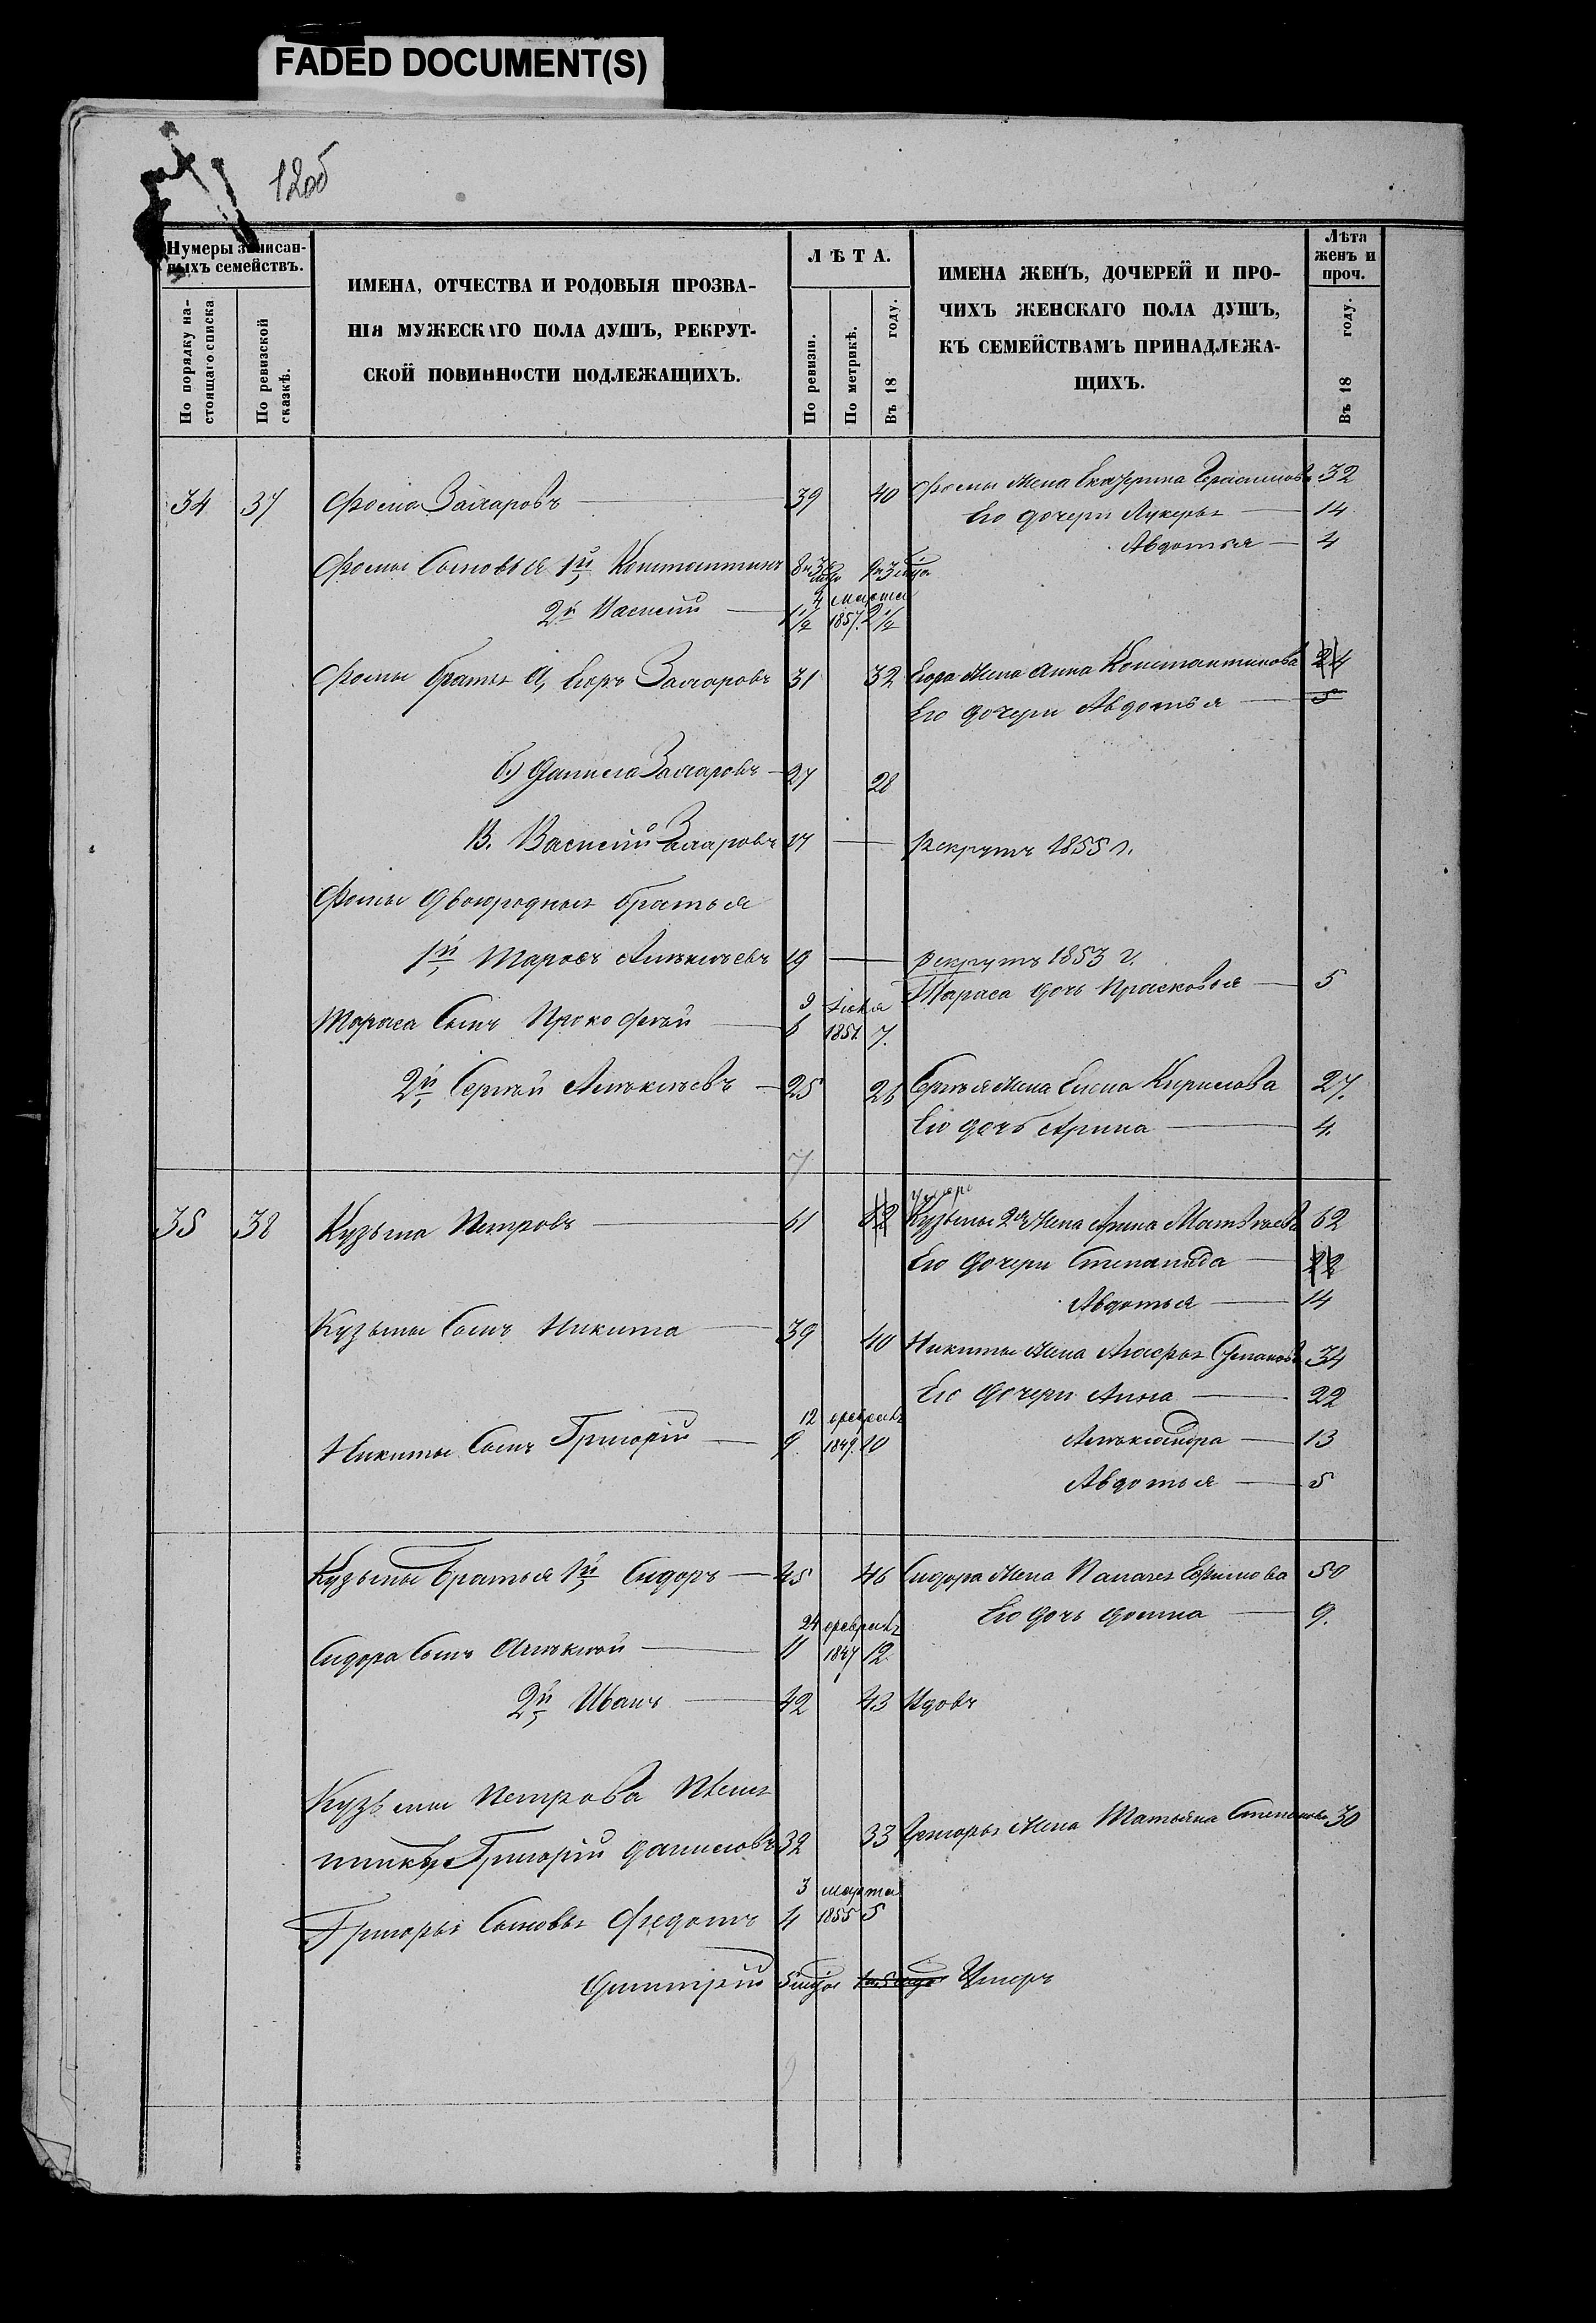 FADED DOCUMENT(S)
12об
Нумеры записан-
ныхъ семействъ.
По порядку на-
стоящаго списка
По ревизской
сказкѣ.
ИМЕНА, ОТЧЕСТВА И РОДОВЫЯ ПРОЗВА-
НІЯ МУЖЕСКАГО ПОЛА ДУШЪ, РЕКРУТ-
СКОЙ ПОВИННОСТИ ПОДЛЕЖАЩИХЪ.
ЛѢТА.
По ревизіи.
По метрикѣ.
Въ 18 году.
ИМЕНА ЖЕНЪ, ДОЧЕРЕЙ И ПРО-
ЧИХЪ ЖЕНСКАГО ПОЛА ДУШЪ,
КЪ СЕМЕЙСТВАМЪ ПРИНАДЛЕЖА-
ЩИХЪ.
Лѣта
женъ и
проч.
Въ 18 году.
34 37 Фома Захаровъ 39 40 Фомы жена Екатерина Герасимова 32
Его дочери Лукерья 14
Авдотья 4
Фомы Сыновья 1й Константинъ
4 марта
2й Василій 1½ 1857. 2½
Фомы братья А, Егоръ Захаровъ 31 32 Егора жена Анна Константинова 24
Его дочери Авдотья 5
б) Данила Захаровъ 27 28
В. Василій Захаровъ 17 рекрутъ 1855 г.
Фомы двоюродныя братья
1й Тарасъ Алексѣевъ 19 рекрутъ 1853 г.
Тараса дочь Прасковья 5
9 Іюля
Тараса Сынъ Прокофій 6 1851. 7.
2й Сергѣй Алексѣевъ 25 26 Сергѣя жена Елена Кирилова 27.
Его дочь Арина 4.
7
умеръ
35 38 Кузьма Петровъ 61 62 Кузьмы 2я жена Арина Матвѣева 62
Его дочери Степанида 22
Авдотья 14
Кузьмы Сынъ Никита 39 40 Никиты жена Агафья Степанова 34
Его дочери Анна 22
12 февраля
Никиты Сынъ Григорій 9 1849. 10 Александра 13
Авдотья 5
Кузьмы братья 1й Сидоръ 45 46 Сидора жена Ефимова 50
Его дочь Домна 9.
24 февраля
Сидора Сынъ Алексѣй 11 1847 12
2й Иванъ 42 43 Вдовъ
Кузьмы Петрова племя-
нникъ Григорій Даниловъ 32 33 Григорья жена Татьяна Степанова 30
3 марта
Григорья Сыновья Федотъ 4 1855 5
Дмитрій 5 мѣся Умеръ